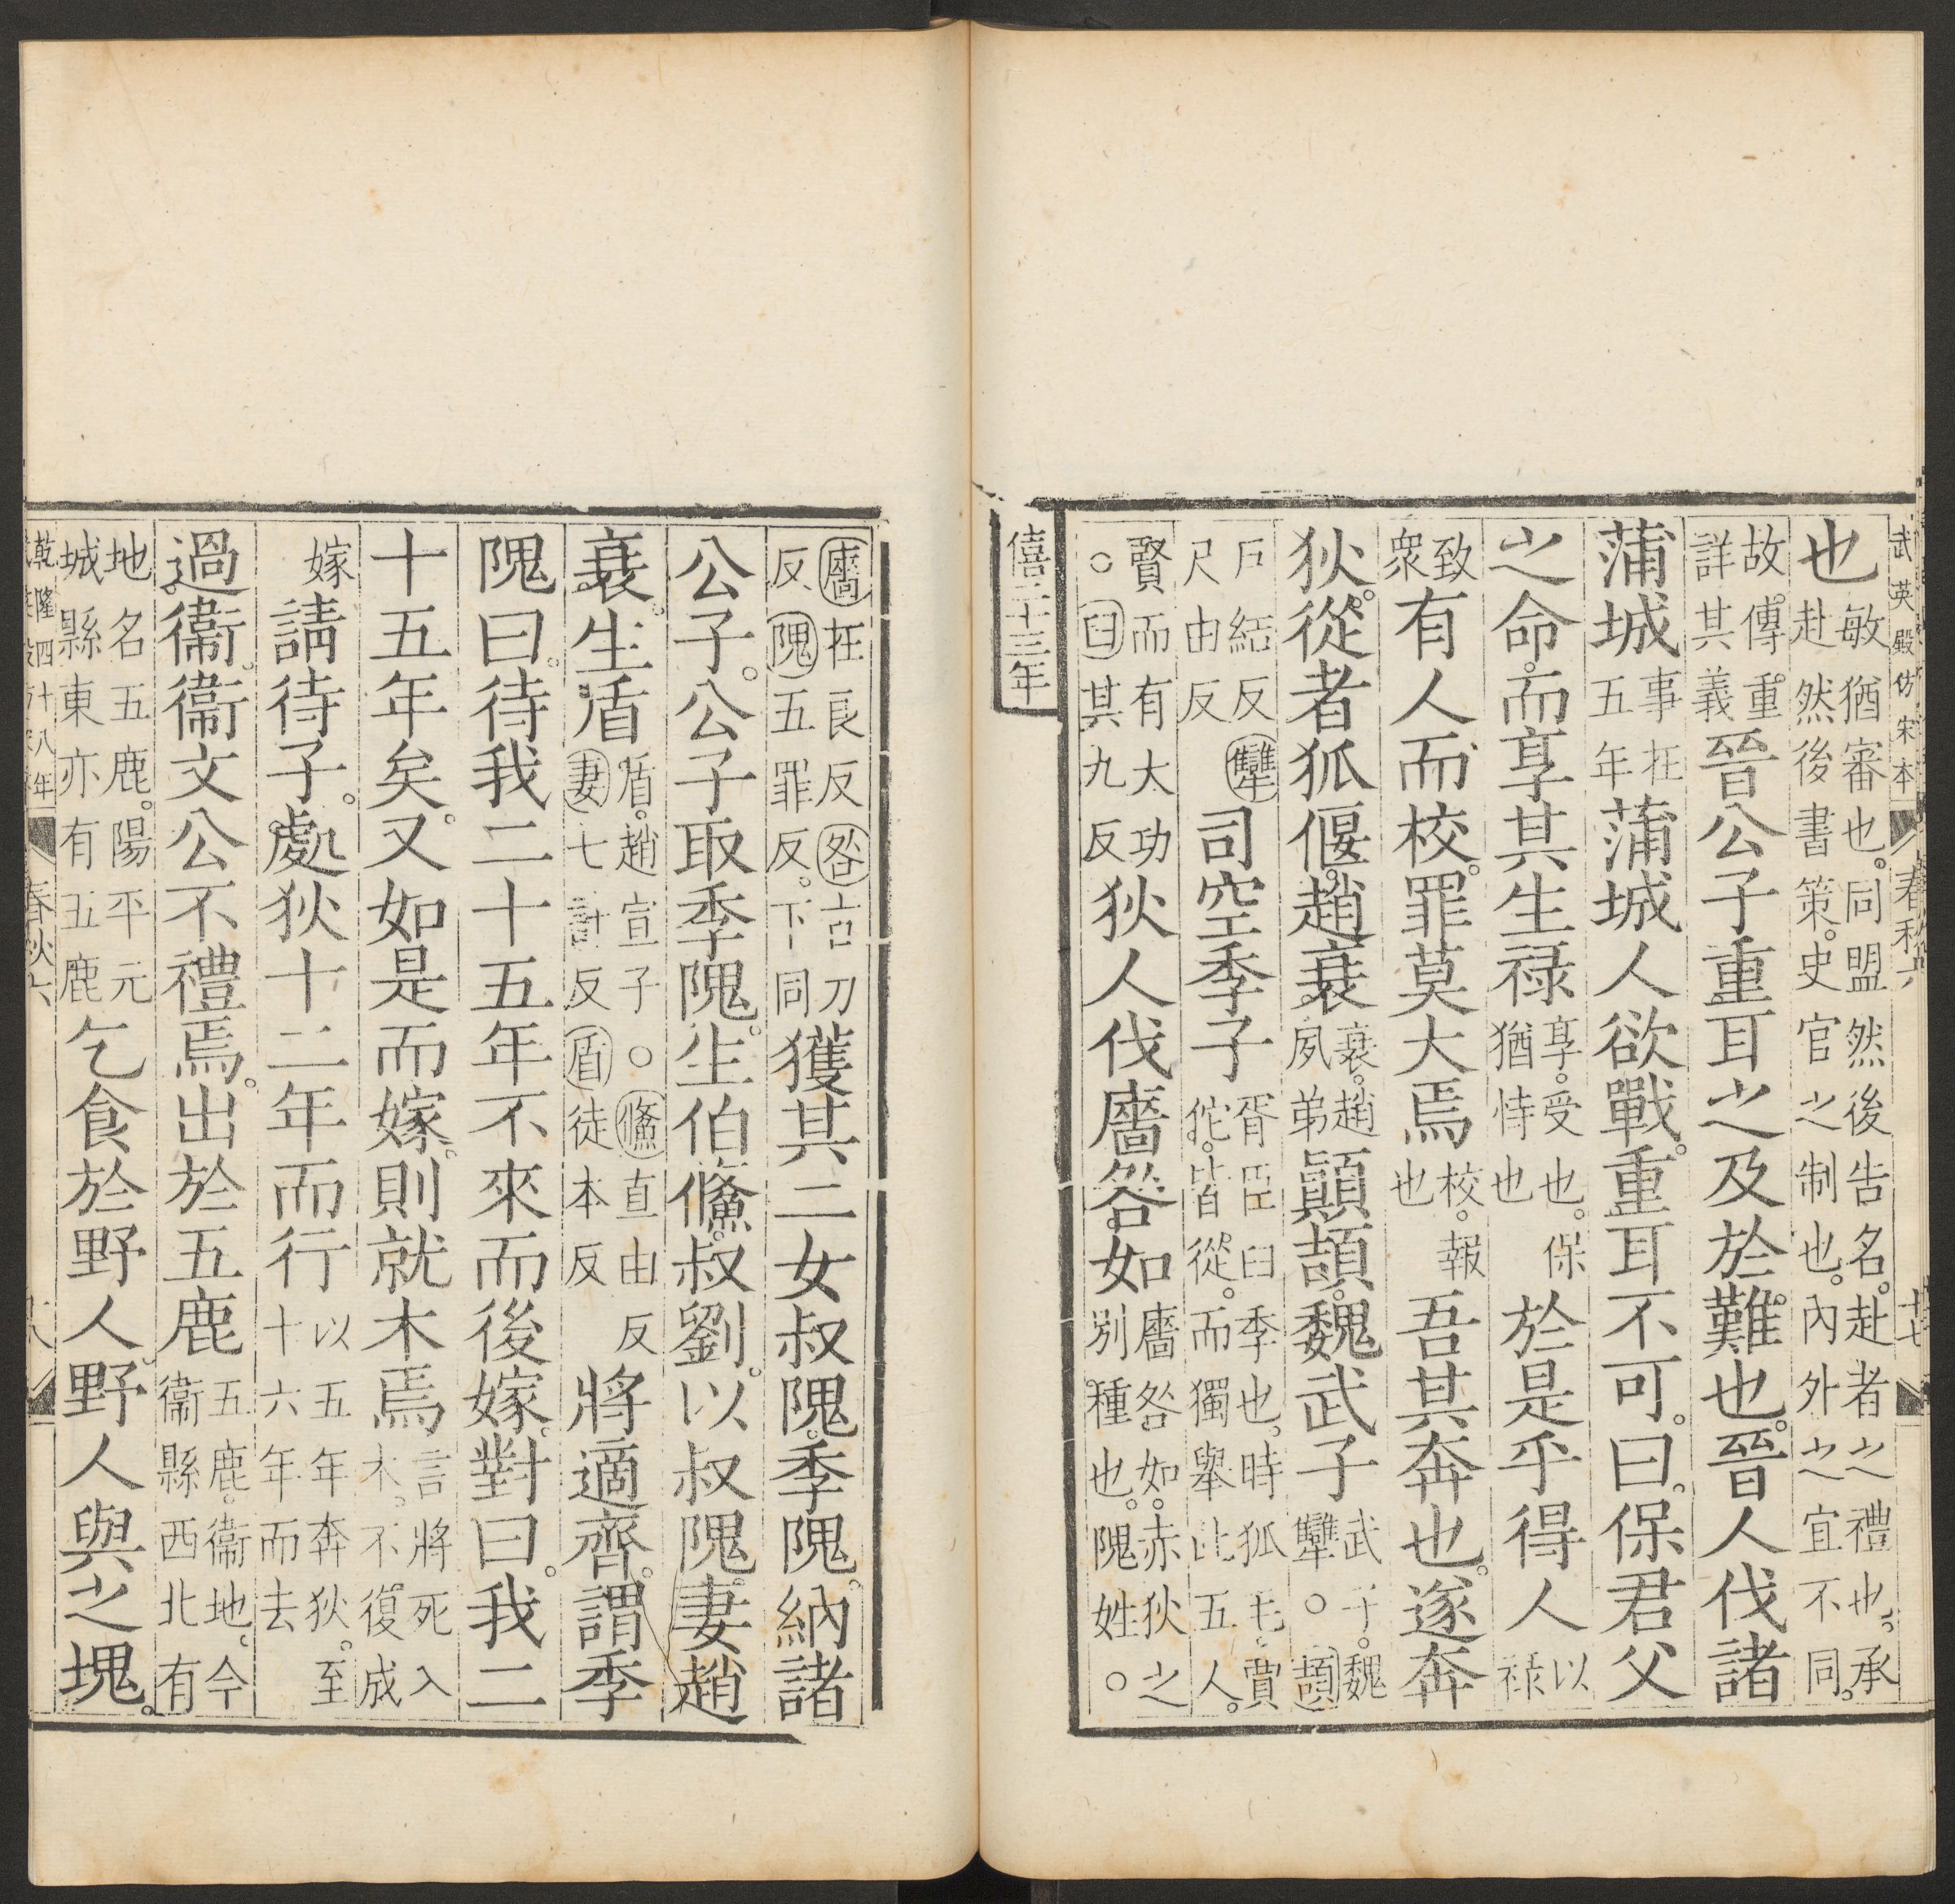 武英殿仿宋本 春秋六 十七
也敏猶審也。同盟然後告名。赴者之禮也。承赴然後書策。史官之制也。內外之宜不同。
故傳重詳其義晉公子重耳之及於難也。晉人伐諸
蒲城事在五年蒲城人欲戰。重耳不可。曰。保君父
之命。而享其生祿享。受也。保猶恃也於是乎得人以祿
致眾有人而校。罪莫大焉校。報也吾其奔也。遂奔
狄。從者狐偃。趙衰衰。趙夙弟顚頡。魏武子武子。魏犨○頡
戶結反犨尺由反司空季子胥臣臼季也。時狐毛。賈佗。皆從。而獨舉此五人。
賢而有大功○臼其九反狄人伐廧咎如廧咎如。赤狄之別種也。隗姓○
僖二十三年
廧在良反咎古刀反隗五罪反。下同獲其二女叔隗。季隗。納諸
公子。公子取季隗。生伯鯈。叔劉。以叔隗妻趙
衰。生盾盾。趙宣子○鯈直由反妻七計反盾徒本反將適齊。謂季
隗曰。待我二十五年不來而後嫁。對曰。我二
十五年矣。又如是而嫁。則就木焉言將死入木。不復成
嫁請待子。處狄十二年而行以五年奔狄。至十六年而去
過衞。衞文公不禮焉。出於五鹿五鹿。衞地。今衞縣西北有
地名五鹿。陽平元城縣東亦有五鹿乞食於野人。野人與之塊。
乾隆四十八年 春秋六 十八